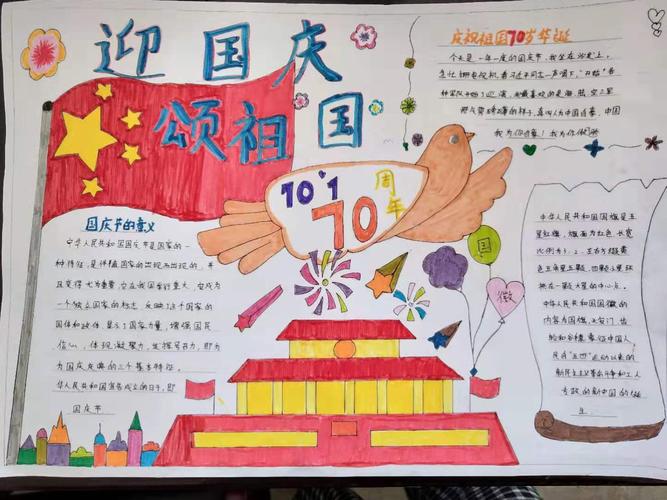 迎国庆
颂祖国
庆祝祖国70岁华诞
今天是一年一度的国庆节,我坐在沙发上,
我为你自豪!我为你骄傲
10·1
70
周年
国庆节的意义
中华人民共和国国庆节是国家的一
种特征,是伴随国家的出现而出现的,并
且变得尤为重要,它在我国有重大,它成为
一个独立国家的标志,反映了这个国家的
国体和政体,显示了国家力量,增强国民
信心,体现凝聚力,发挥号召力,即为
为国庆庆典的三个基本特征。
华人民共和国宣告成立的日子,即
国庆节
国
徽
中华人民共和国国旗是五
星红旗,旗面为红色,长宽
比例为3:2,左上方缀黄
色五角星五颗,四颗小星环
拱在一颗大星的中心点。
中华人民共和国国徽的
内容为国旗、天安门、齿
轮和谷穗,象征中国人
民自"五四"运动以来的
新民主主义革命斗争和工人
专政的新中国的诞
生